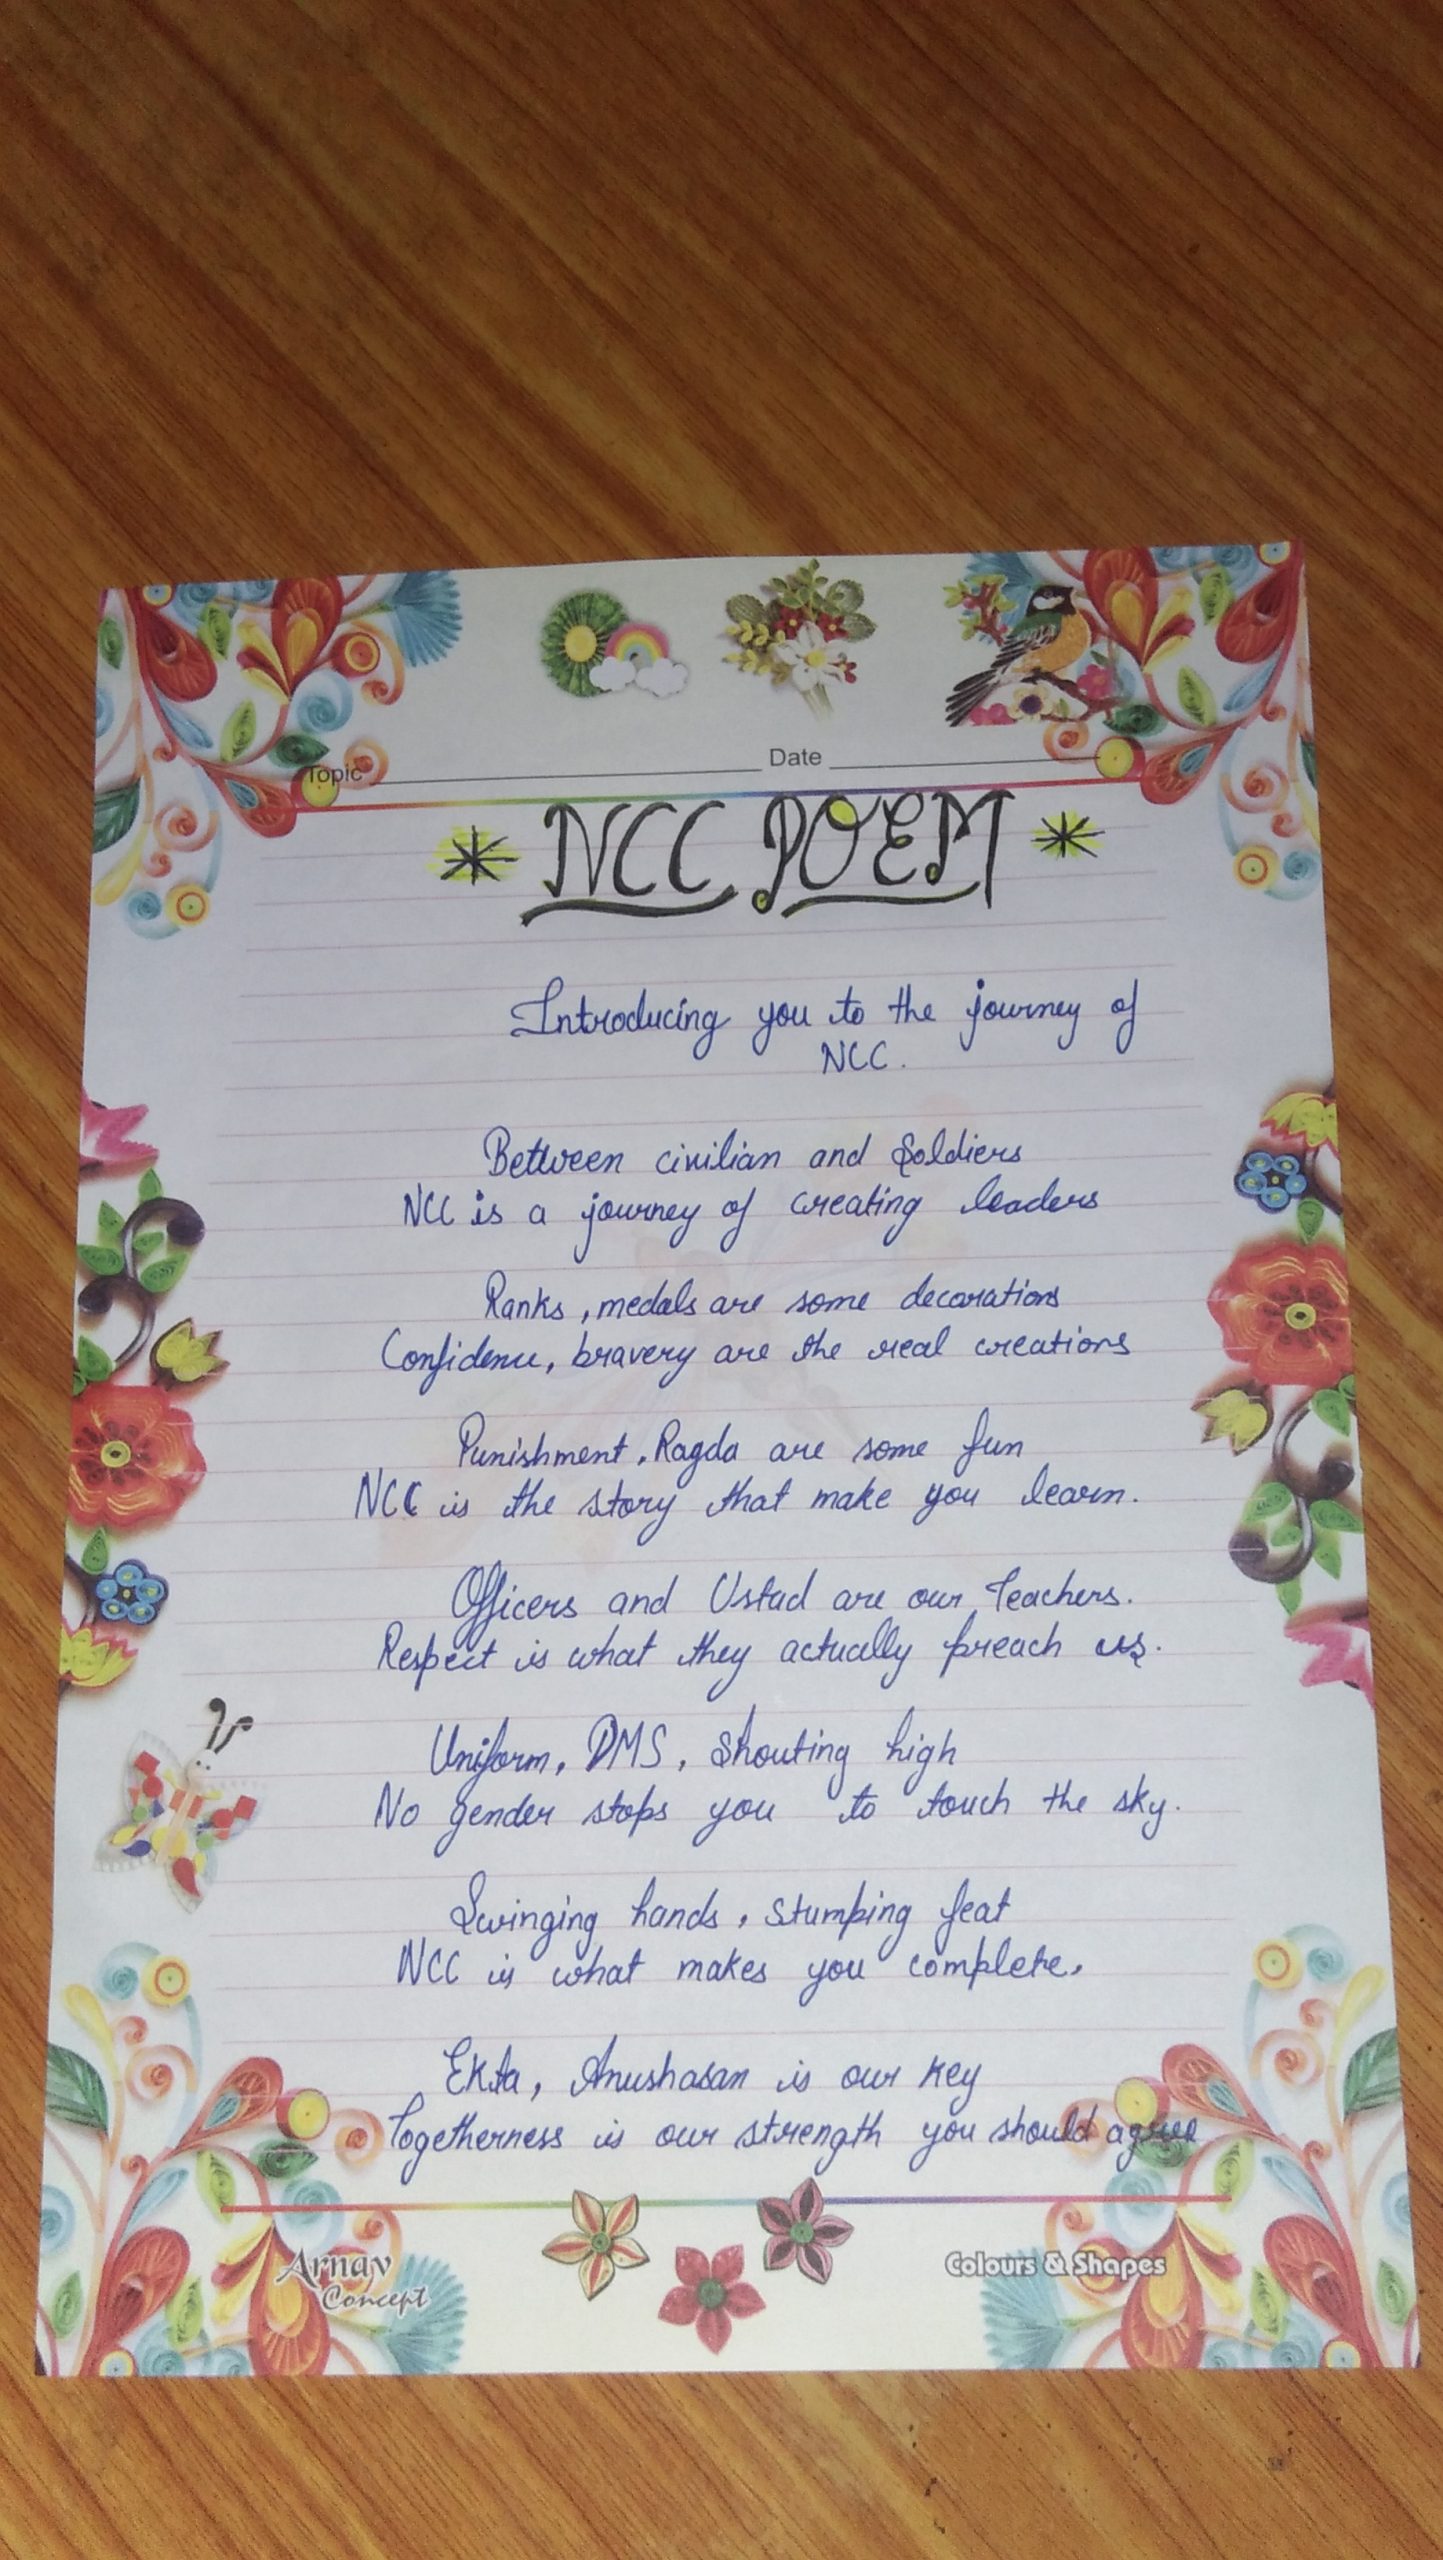 Topic
Date
* NCC POEM *
Introducing you to the journey of
NCC.
Between civilian and Soldiers
NCC is a journey of creating leaders
Ranks, medals are some decorations
Confidence, bravery are the real creations
Punishment, Ragda are some fun
NCC is the story that make you learn.
Officers and Ustad are our Teachers.
Respect is what they actually preach us.
Uniform, DMS, shouting high
No gender stops you to touch the sky.
Swinging hands, stumping feat
NCC is what makes you complete.
Ekta, Anushasan is our key
Togetherness is our strength you should agree
Arnav
Concept
Colours & Shapes